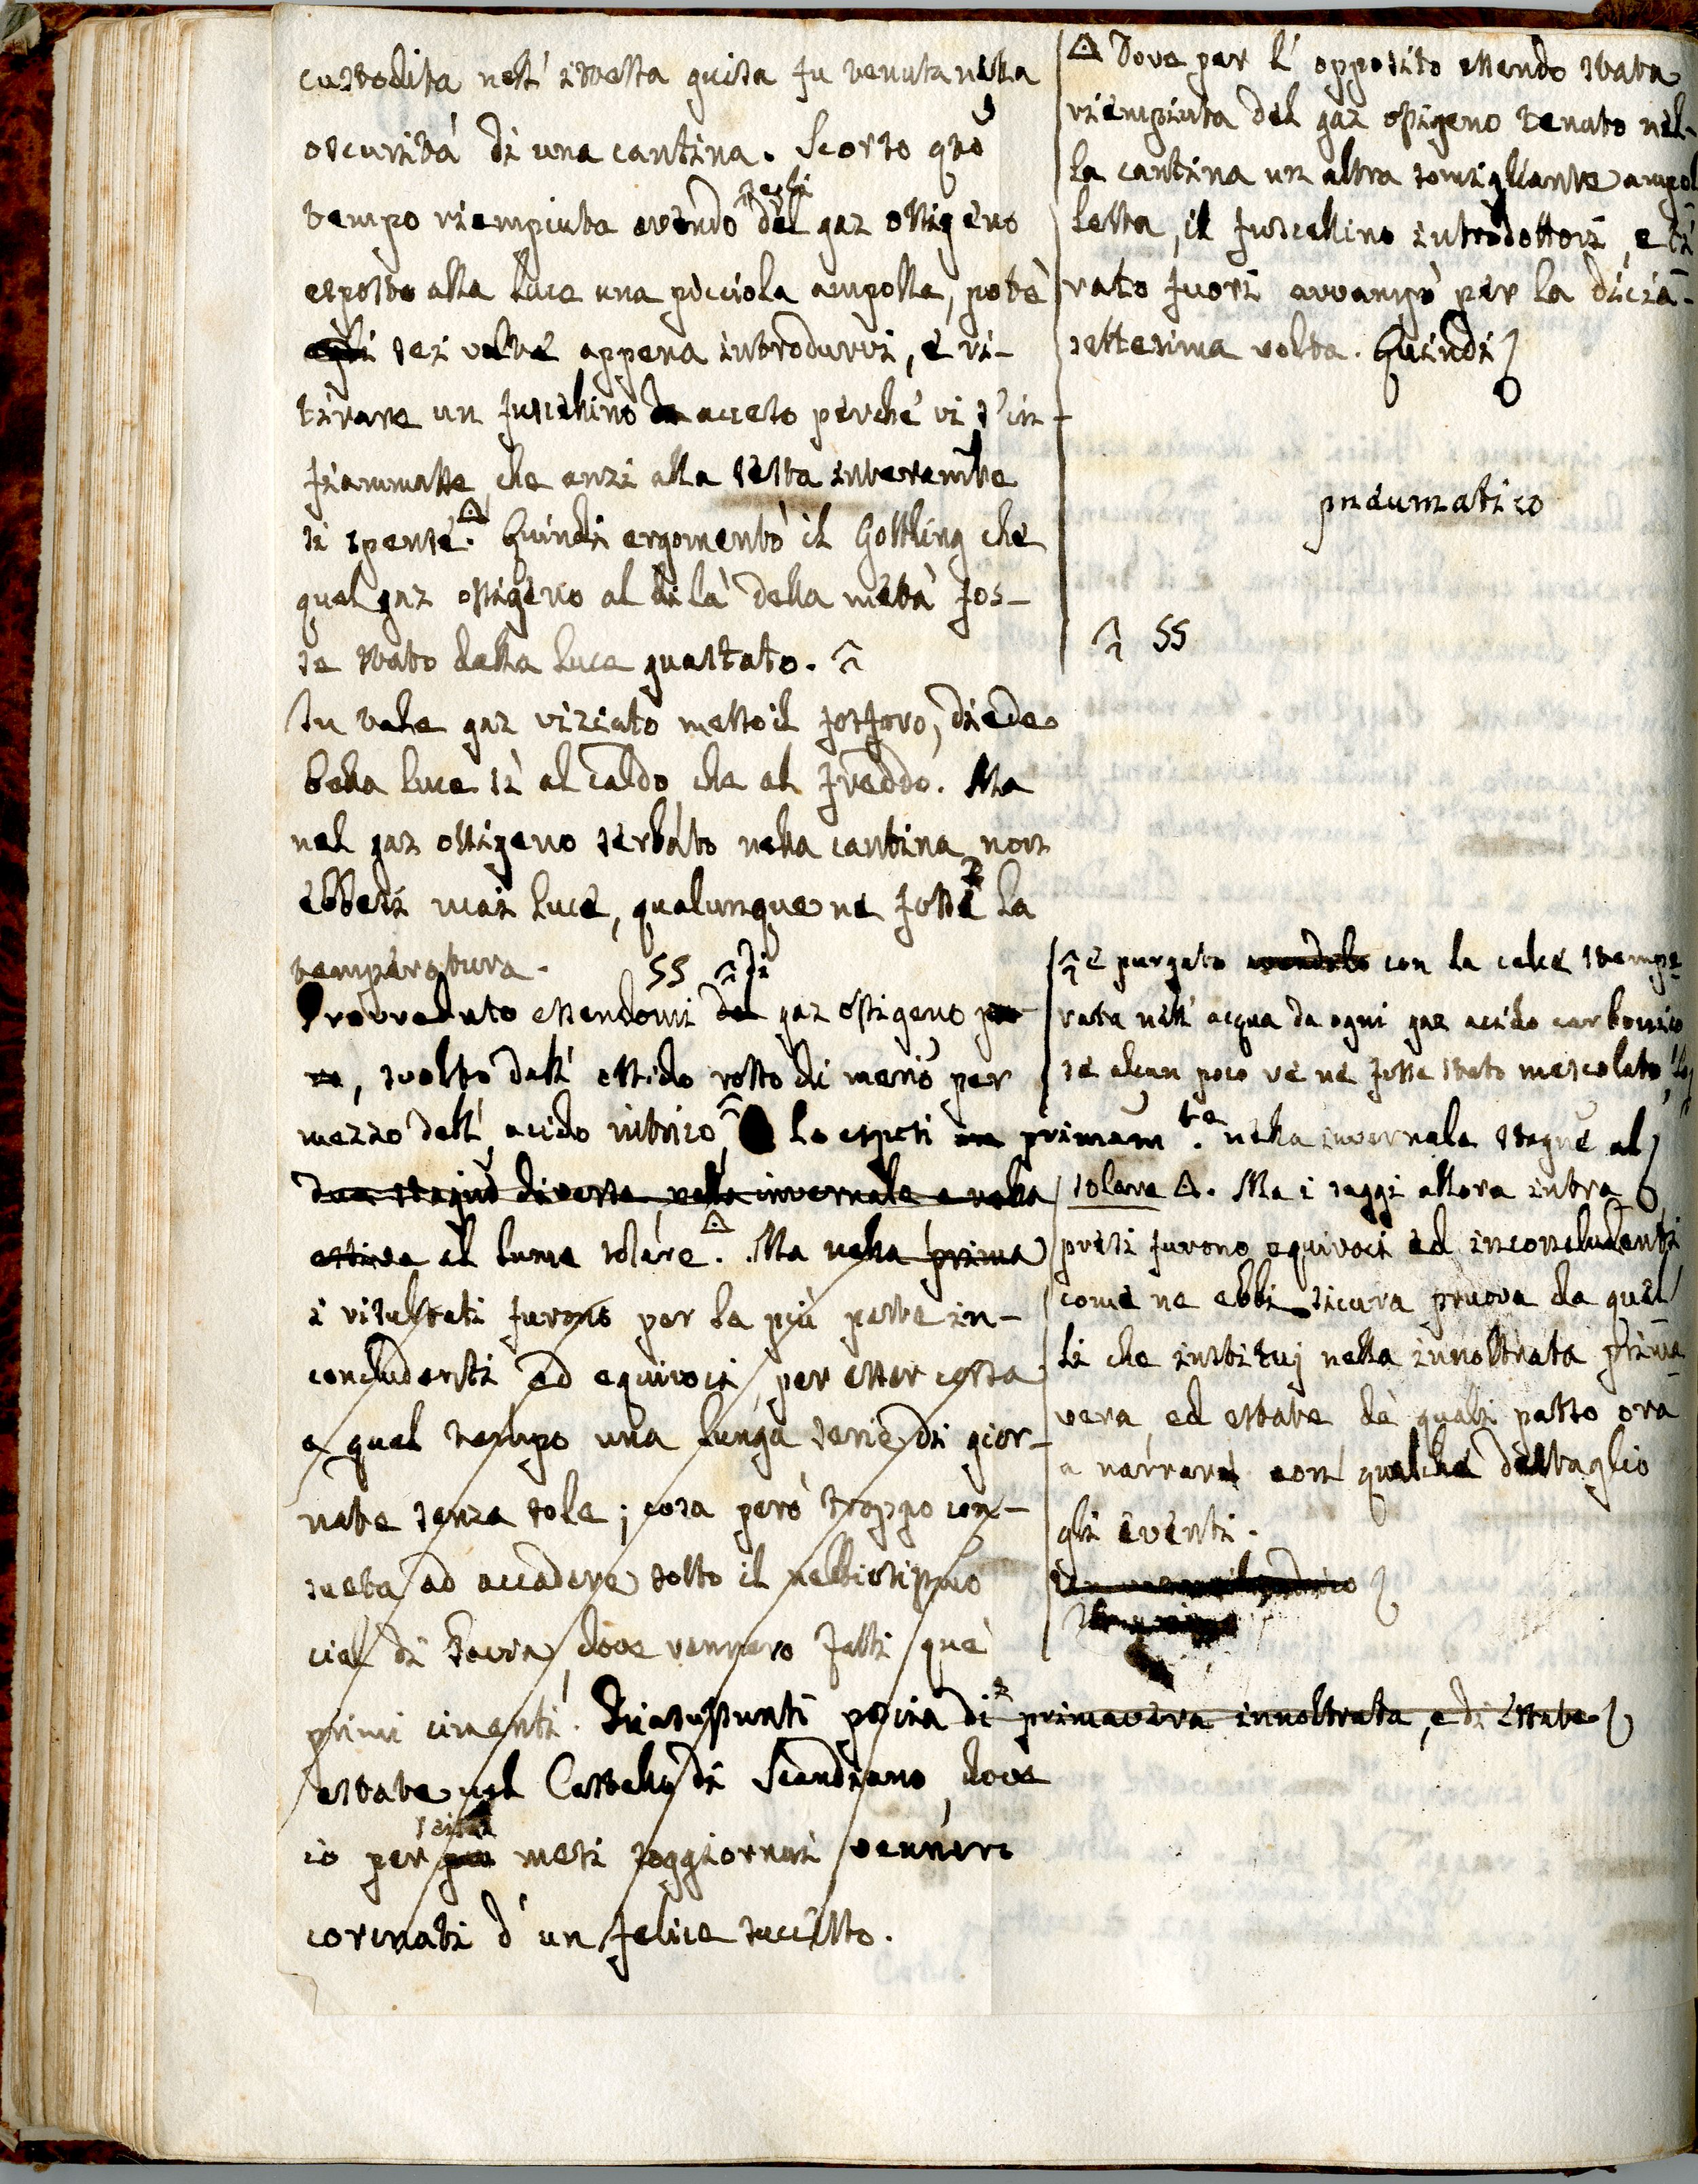 custodita nell' istessa guisa fu tenuta nella
oscurità di una cantina. Scorso q.to
tempo riempiuta avendo egli del gaz ossigeno
esposto alla luce una picciola ampolla, potè
egli sei volte appena introdurvi, e ri-
tirare un fuscellino acceso perchè vi s'in-
fiammasse, che anzi alla sesta interam.te
si spense. Quindi argomentò il Gottling che
quel gaz ossigeno al di là della metà fos-
se stato dalla luce guastato.
In tale gaz viziato messo il fosforo, diede
bella luce sì al caldo che al freddo. Ma
nel gaz ossigeno serbato nella cantina non
ebbesi mai luce, qualunque ne fosse la
temperatura. SS di
Provveduto essendomi del gaz ossigeno pu-
ro, svolto dall' ossido rosso di merc.o per
mezzo dell' acido nitrico, lo esposi in primam.te nella invernale stagne al
due stagioni diverse, nella invernale e nella
estiva al lume solare. Ma nella prima
i risultati furono per la più parte in-
concludenti ed equivoci, per esser corsa
a quel tempo una lunga serie di gior-
nate senza sole; cosa però troppo con-
sueta ad accadere sotto il nebbiosissimo
ciel di Pavia, dove vennero fatti que'
primi cimenti. Riassunti poscia di primavera innoltrata, e di estate
estate nel Castello di Scandiano, dove
io per più mesi soggiornai vennero
coronati d' un felice successo.
Dove per l' opposito essendo stata
riempiuta del gaz ossigeno tenuto nel-
la cantina un altra somigliante ampol
letta, il fuscellino introdottovi, e ti
rato fuori avvampò per la dicia-
settesima volta. Quindi
pneumatico
SS
e purgato avendolo con la calce stempe
rata nell' acqua da ogni gaz acido carbonico
se alcun poco ve ne fosse stato mescolato, lo
solare. Ma i saggi allora intra
presi furono equivoci ed inconcludenti,
come ne ebbi sicura pruova da quel
li che instituj nella innoltrata prima
vera, ed estate de' quali passo ora
a narrare con qualche dettaglio
gli eventi.